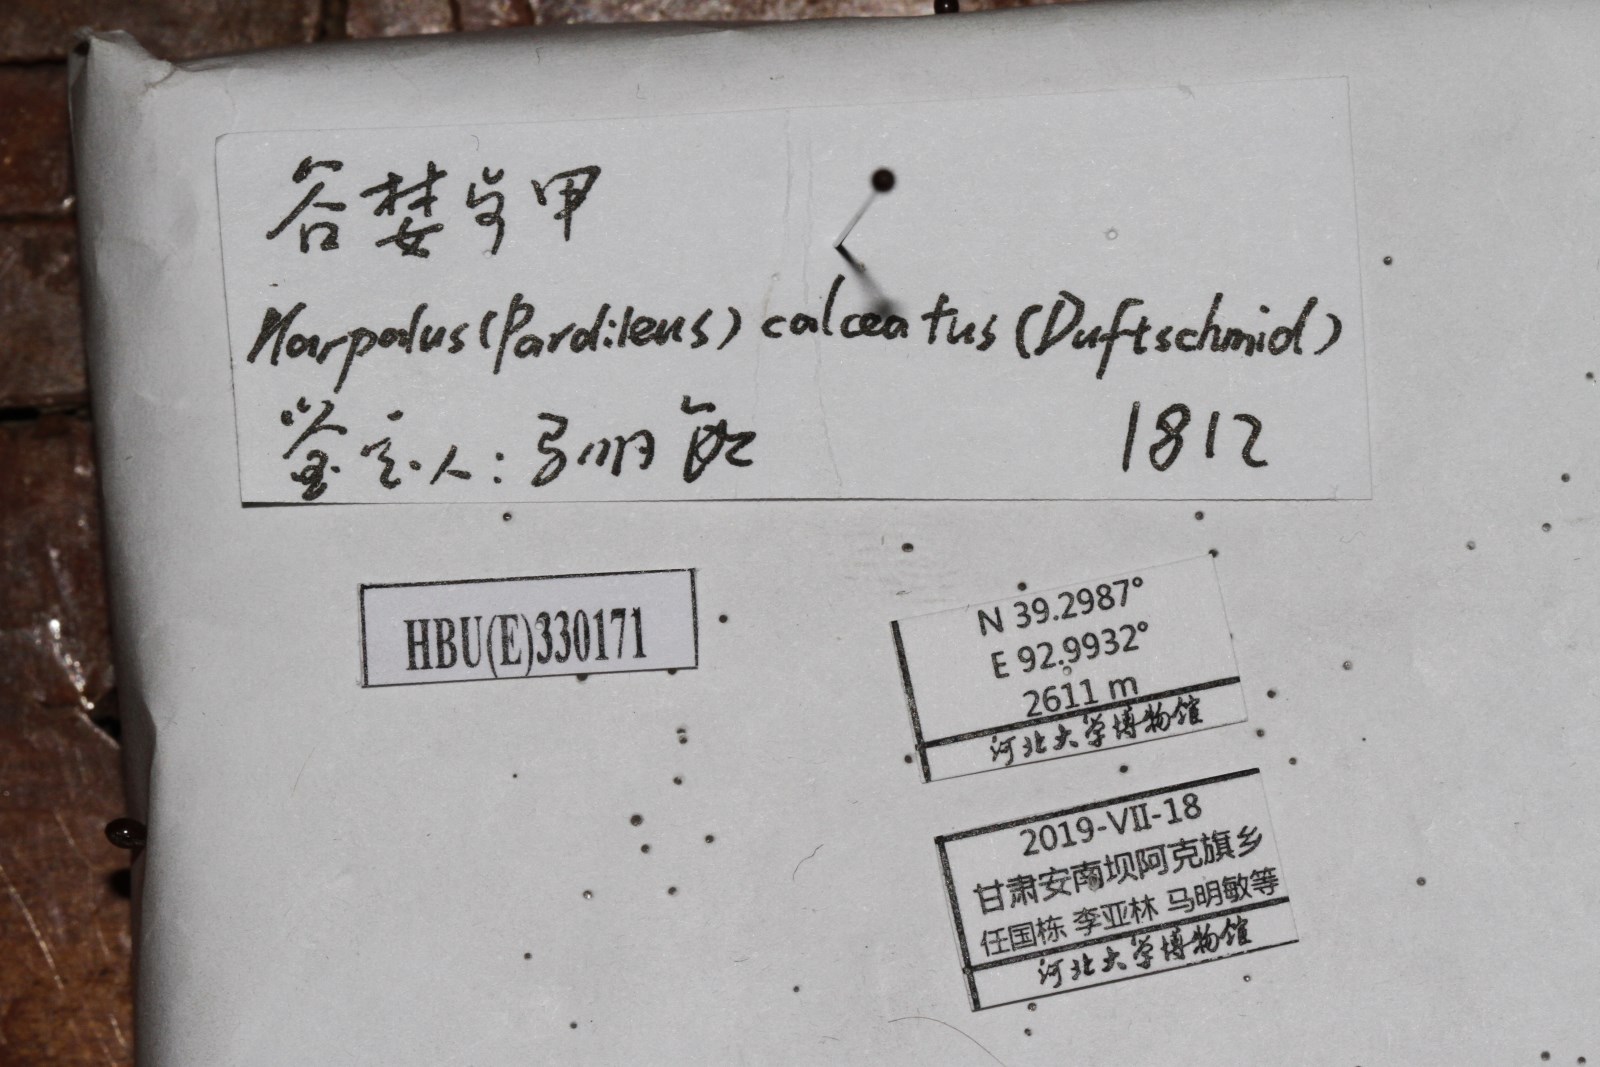 谷婪步甲
Harpalus (Pardileus) calceatus (Duftschmid)
鉴定人：马明敏 1812
HBU(E)330171
N 39.2987°
E 92.9932°
2611 m
河北大学博物馆
2019-VII-18
甘肃安南坝阿克旗乡
任国栋 李亚林 马明敏等
河北大学博物馆